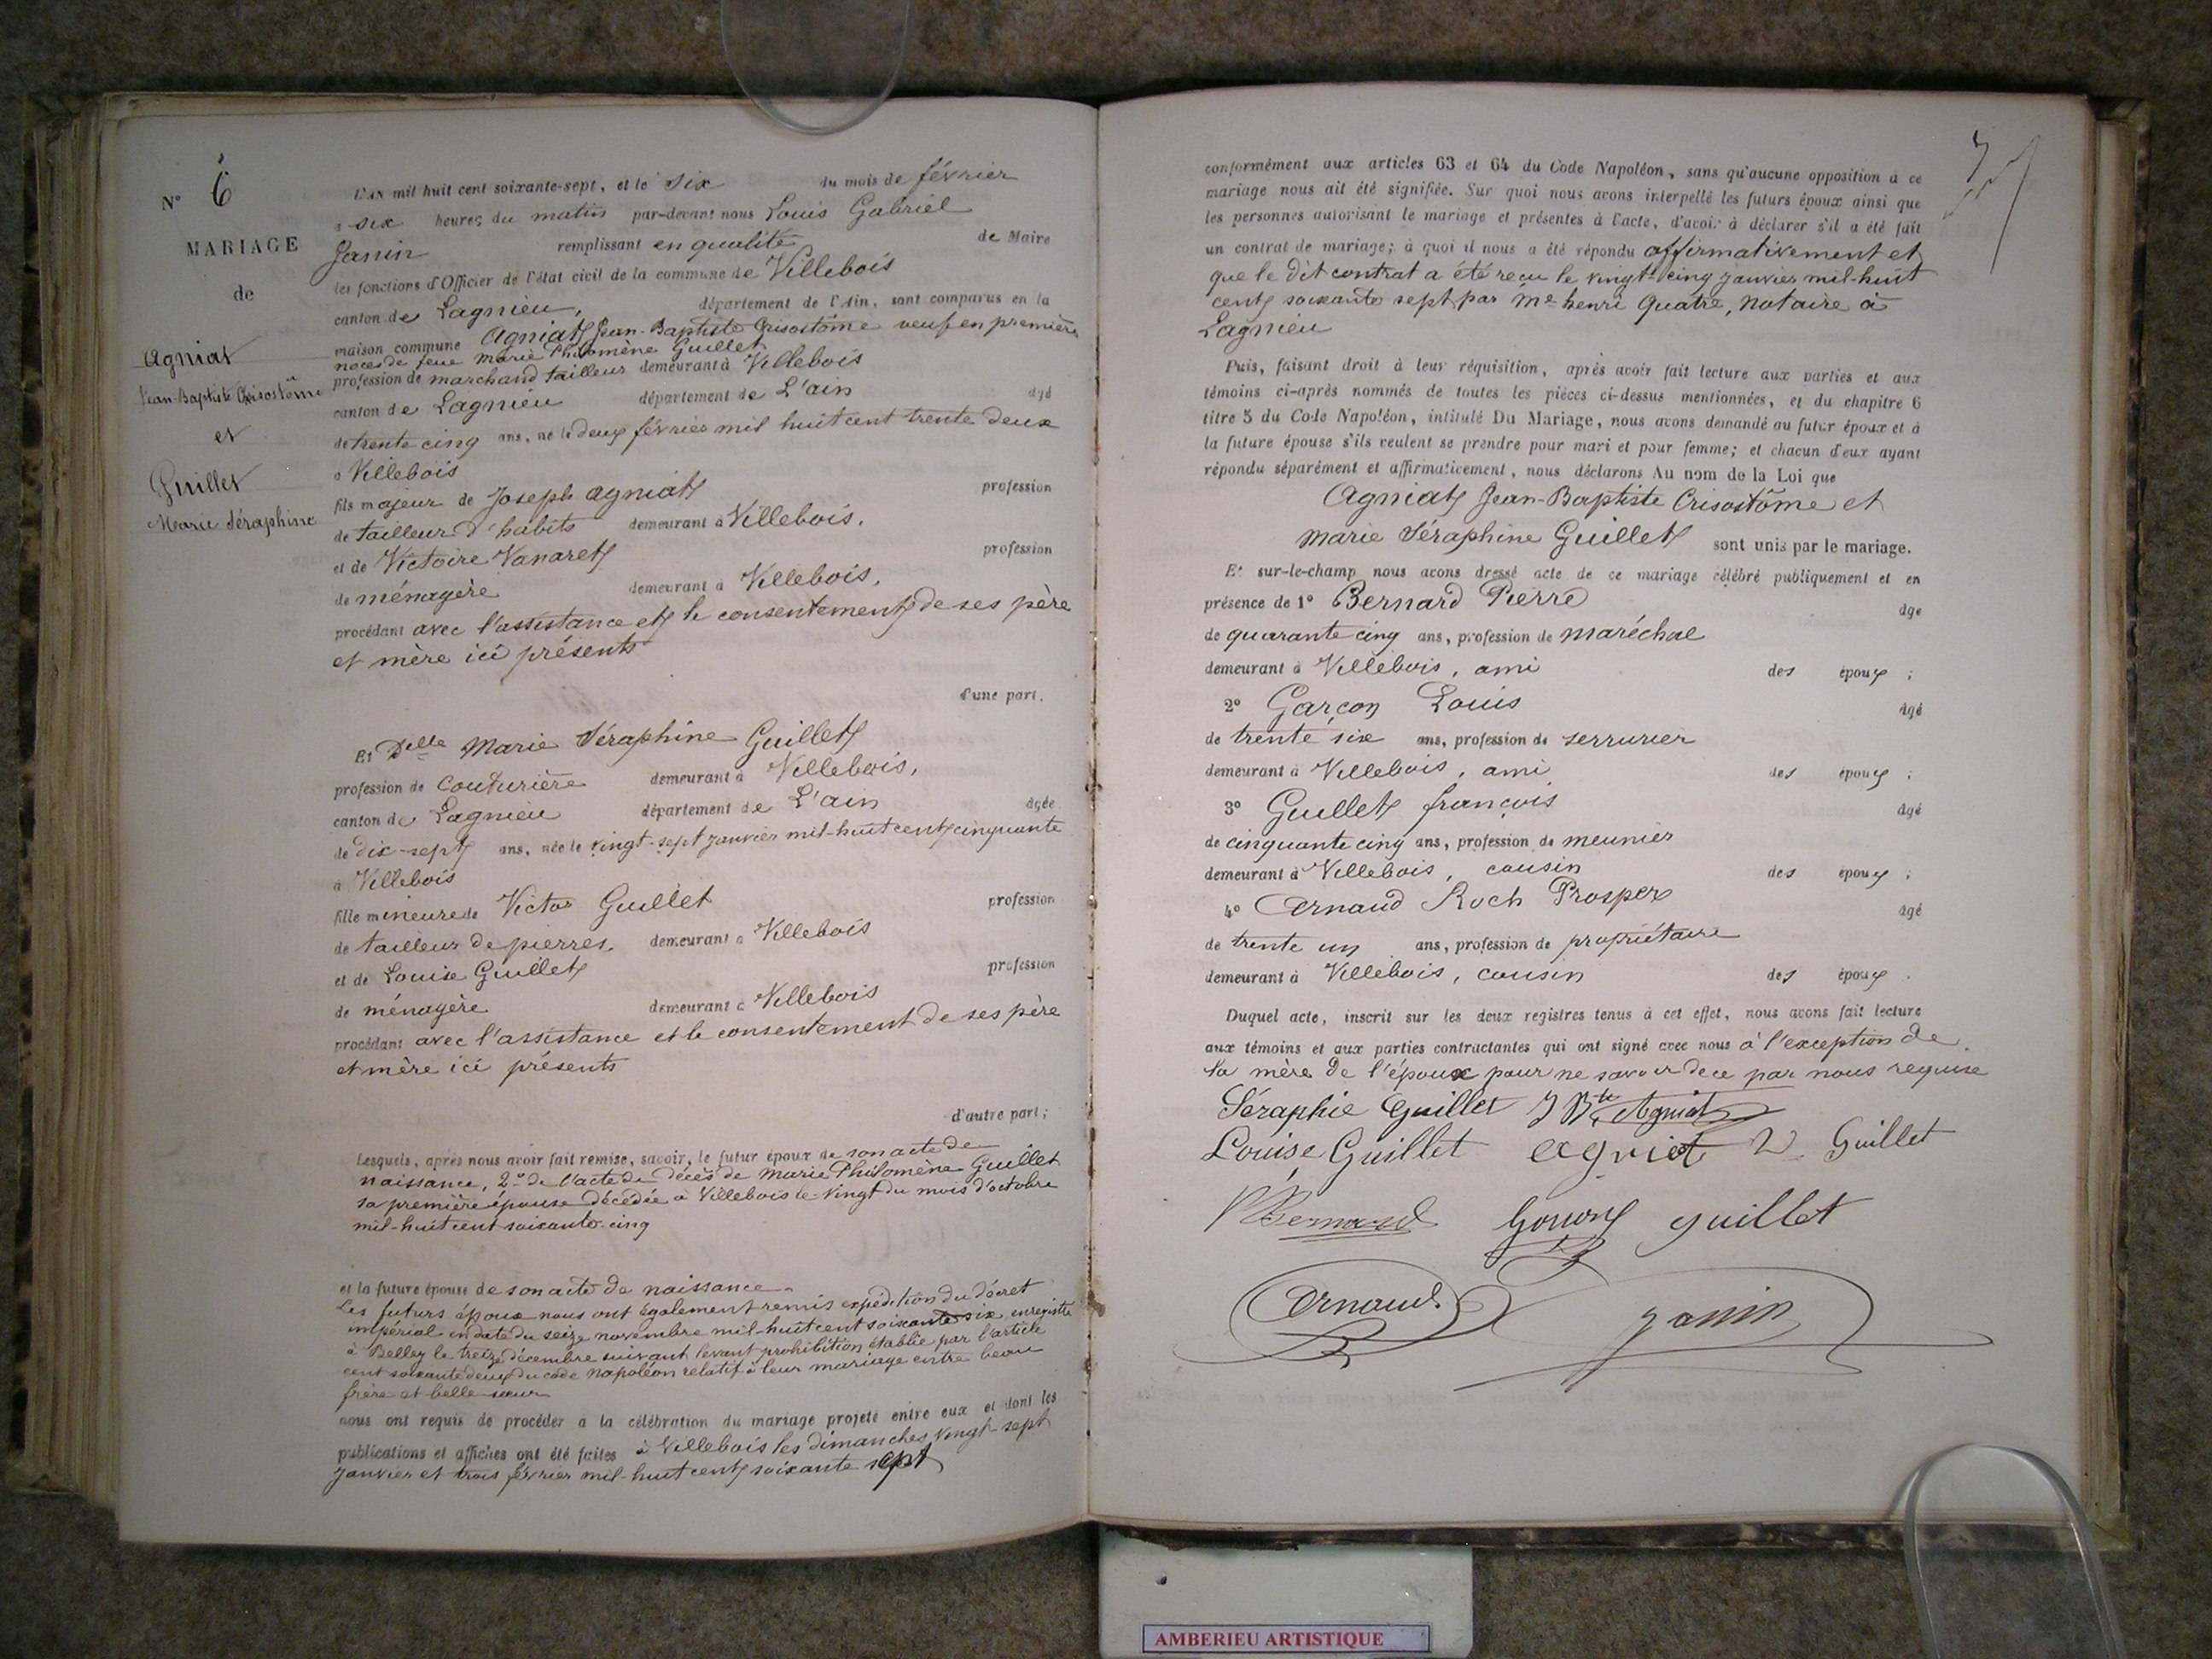 N° 6
MARIAGE
de
Agniat
Jean-Baptiste Crisostôme
et
Guillet
Marie Séraphine
L'AN mil huit cent soixante-sept, et le six du mois de février
à six heures du matin par-devant nous Louis Gabriel
Janin remplissant en qualité de Maire
les fonctions d'Officier de l'état civil de la commune de Villebois
canton de Lagnieu, département de l'Ain, sont comparus en la
maison commune Agniat Jean-Baptiste Crisostôme veuf en première
noces de feue marie Philomène Guillet
profession de marchand tailleur demeurant à Villebois
canton de Lagnieu département de L'ain âgé
de trente cinq ans, né le deux février mil huit cent trente deux
à Villebois
fils majeur de Joseph agniat profession
de tailleur d'habits demeurant à Villebois.
et de Victoire Vanaret profession
de ménagère demeurant à Villebois.
procédant avec l'assistance et le consentement de ses père
et mère ici présents
d'une part.
Et Delle Marie Séraphine Guillet
profession de couturière demeurant à Villebois,
canton de Lagnieu département de L'ain âgée
de dix-sept ans, née le vingt-sept janvier mil-huit cent cinquante
à Villebois
fille mineure de Victor Guillet profession
de tailleur de pierres, demeurant à Villebois
et de Louise Guillet profession
de ménagère demeurant à Villebois
procédant avec l'assistance et le consentement de ses père
et mère ici présents
d'autre part;
Lesquels, après nous avoir fait remise, savoir, le futur époux de son acte de
naissance, 2° de l'acte de décès de Marie Philomène Guillet
sa première épouse décédée à Villebois le vingt du mois d'octobre
mil-huit cent soixante-cinq
et la future épouse de son acte de naissance
Les futurs époux nous ont également remis expédition du décret
impérial en date du seize novembre mil-huit cent soixante six enregistré
à Belley le treize décembre suivant levant prohibition établie par l'article
cent soixante deux du code Napoléon relatif à leur mariage entre beau
frère et belle-sœur
nous ont requis de procéder à la célébration du mariage projeté entre eux et dont les
publications et affiches ont été faites à Villebois les dimanches vingt-sept
janvier et trois février mil-huit cent soixante sept
conformément aux articles 63 et 64 du Code Napoléon, sans qu'aucune opposition à ce
mariage nous ait été signifiée. Sur quoi nous avons interpellé les futurs époux ainsi que
les personnes autorisant le mariage et présentes à l'acte, d'avoir à déclarer s'il a été fait
un contrat de mariage; à quoi il nous a été répondu affirmativement et
que le dit contrat a été reçu le vingt-cinq janvier mil-huit
cent soixante sept par Me henri Quatre, Notaire à
Lagnieu
Puis, faisant droit à leur réquisition, après avoir fait lecture aux parties et aux
témoins ci-après nommés de toutes les pièces ci-dessus mentionnées, et du chapitre 6
titre 5 du Code Napoléon, intitulé Du Mariage, nous avons demandé au futur époux et à
la future épouse s'ils veulent se prendre pour mari et pour femme; et chacun d'eux ayant
répondu séparément et affirmativement, nous déclarons Au nom de la Loi que
Agniat Jean-Baptiste Crisostôme et
Marie Séraphine Guillet sont unis par le mariage.
Et sur-le-champ nous avons dressé acte de ce mariage célébré publiquement et en
présence de 1° Bernard Pierre âgé
de quarante cinq ans, profession de maréchal
demeurant à Villebois, ami des époux;
2° Garçon Louis âgé
de trente six ans, profession de serrurier
demeurant à Villebois, ami des époux;
3° Guillet françois âgé
de cinquante cinq ans, profession de meunier
demeurant à Villebois, cousin des époux;
4° Arnaud Roch Prosper âgé
de trente un ans, profession de propriétaire
demeurant à Villebois, cousin des époux.
Duquel acte, inscrit sur les deux registres tenus à cet effet, nous avons fait lecture
aux témoins et aux parties contractantes qui ont signé avec nous à l'exception de
la mère de l'époux pour ne savoir de ce par nous requise
Séraphie Guillet J Bte Agniat
Louise Guillet agniet V. Guillet
P Bernard guillet
Arnaud Janin
AMBERIEU ARTISTIQUE